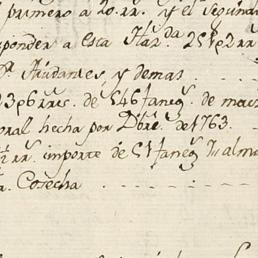 primero a 20. rr. y el Segund
sponder a esta Haz.da 251p2rr
D.s Aiudantes, y demas
23p6rrs. de 546 faneg.s de mai
ral hecha por Dbre. de 1763.
½ rr. importe de 51 faneg.s ½ alm
a. Cosecha